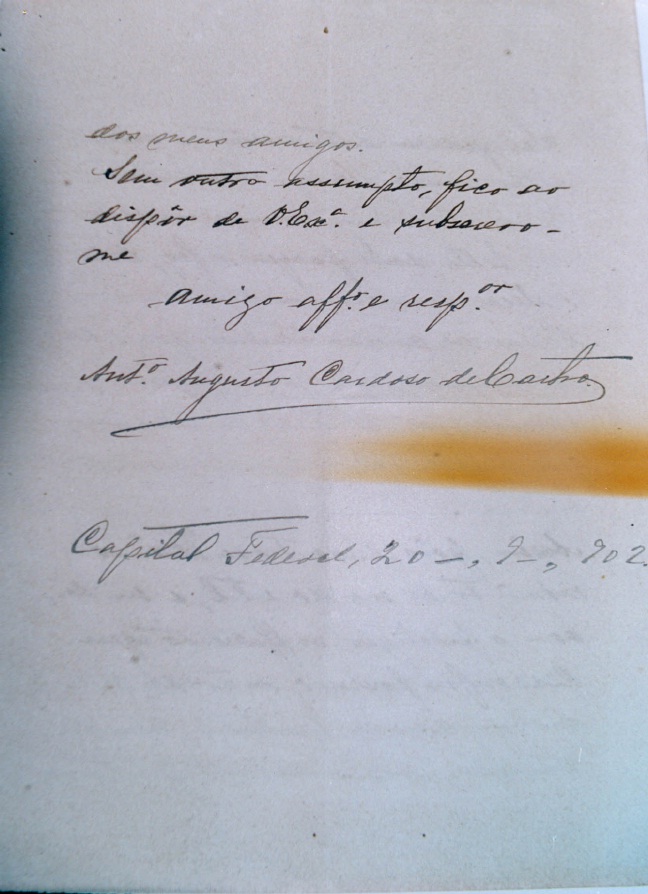 dos meus amigos.
Sem outro assumpto, fico ao
dispôr de V. Exª. e subscrevo-
me
amigo affº. e resp.ᵒʳ
Antº. Augusto Cardoso de Castro.
Capital Federal, 20-, 9-, 902.